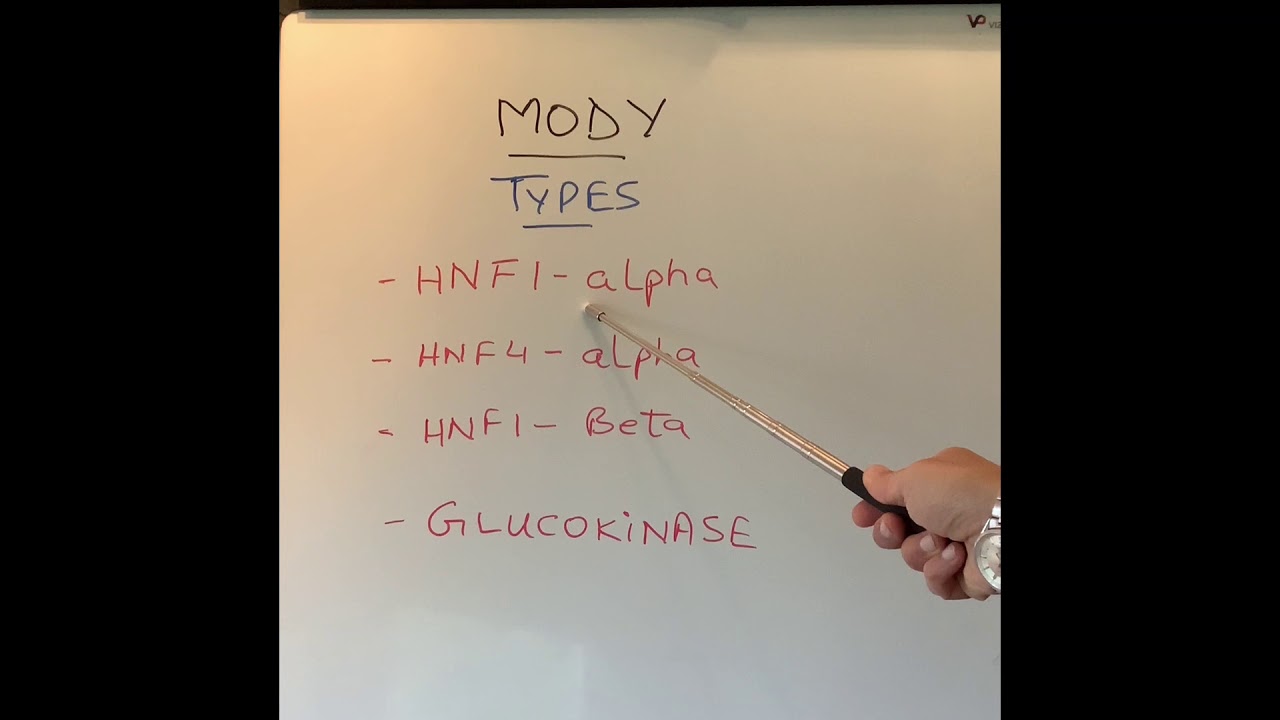 MODY
TYPES
- HNF1 - alpha
- HNF4 - alpha
- HNF1 - Beta
- GLUCOKiNASE